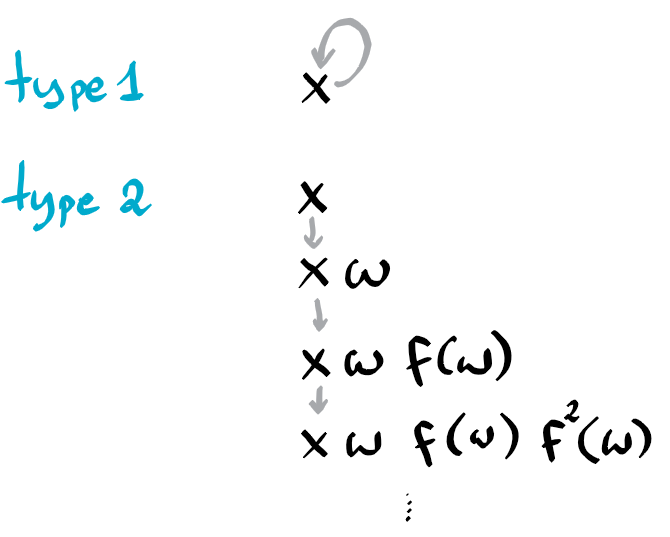 type 1 x
type 2 x
x ω
x ω f(ω)
x ω f(ω) f²(ω)
⋮